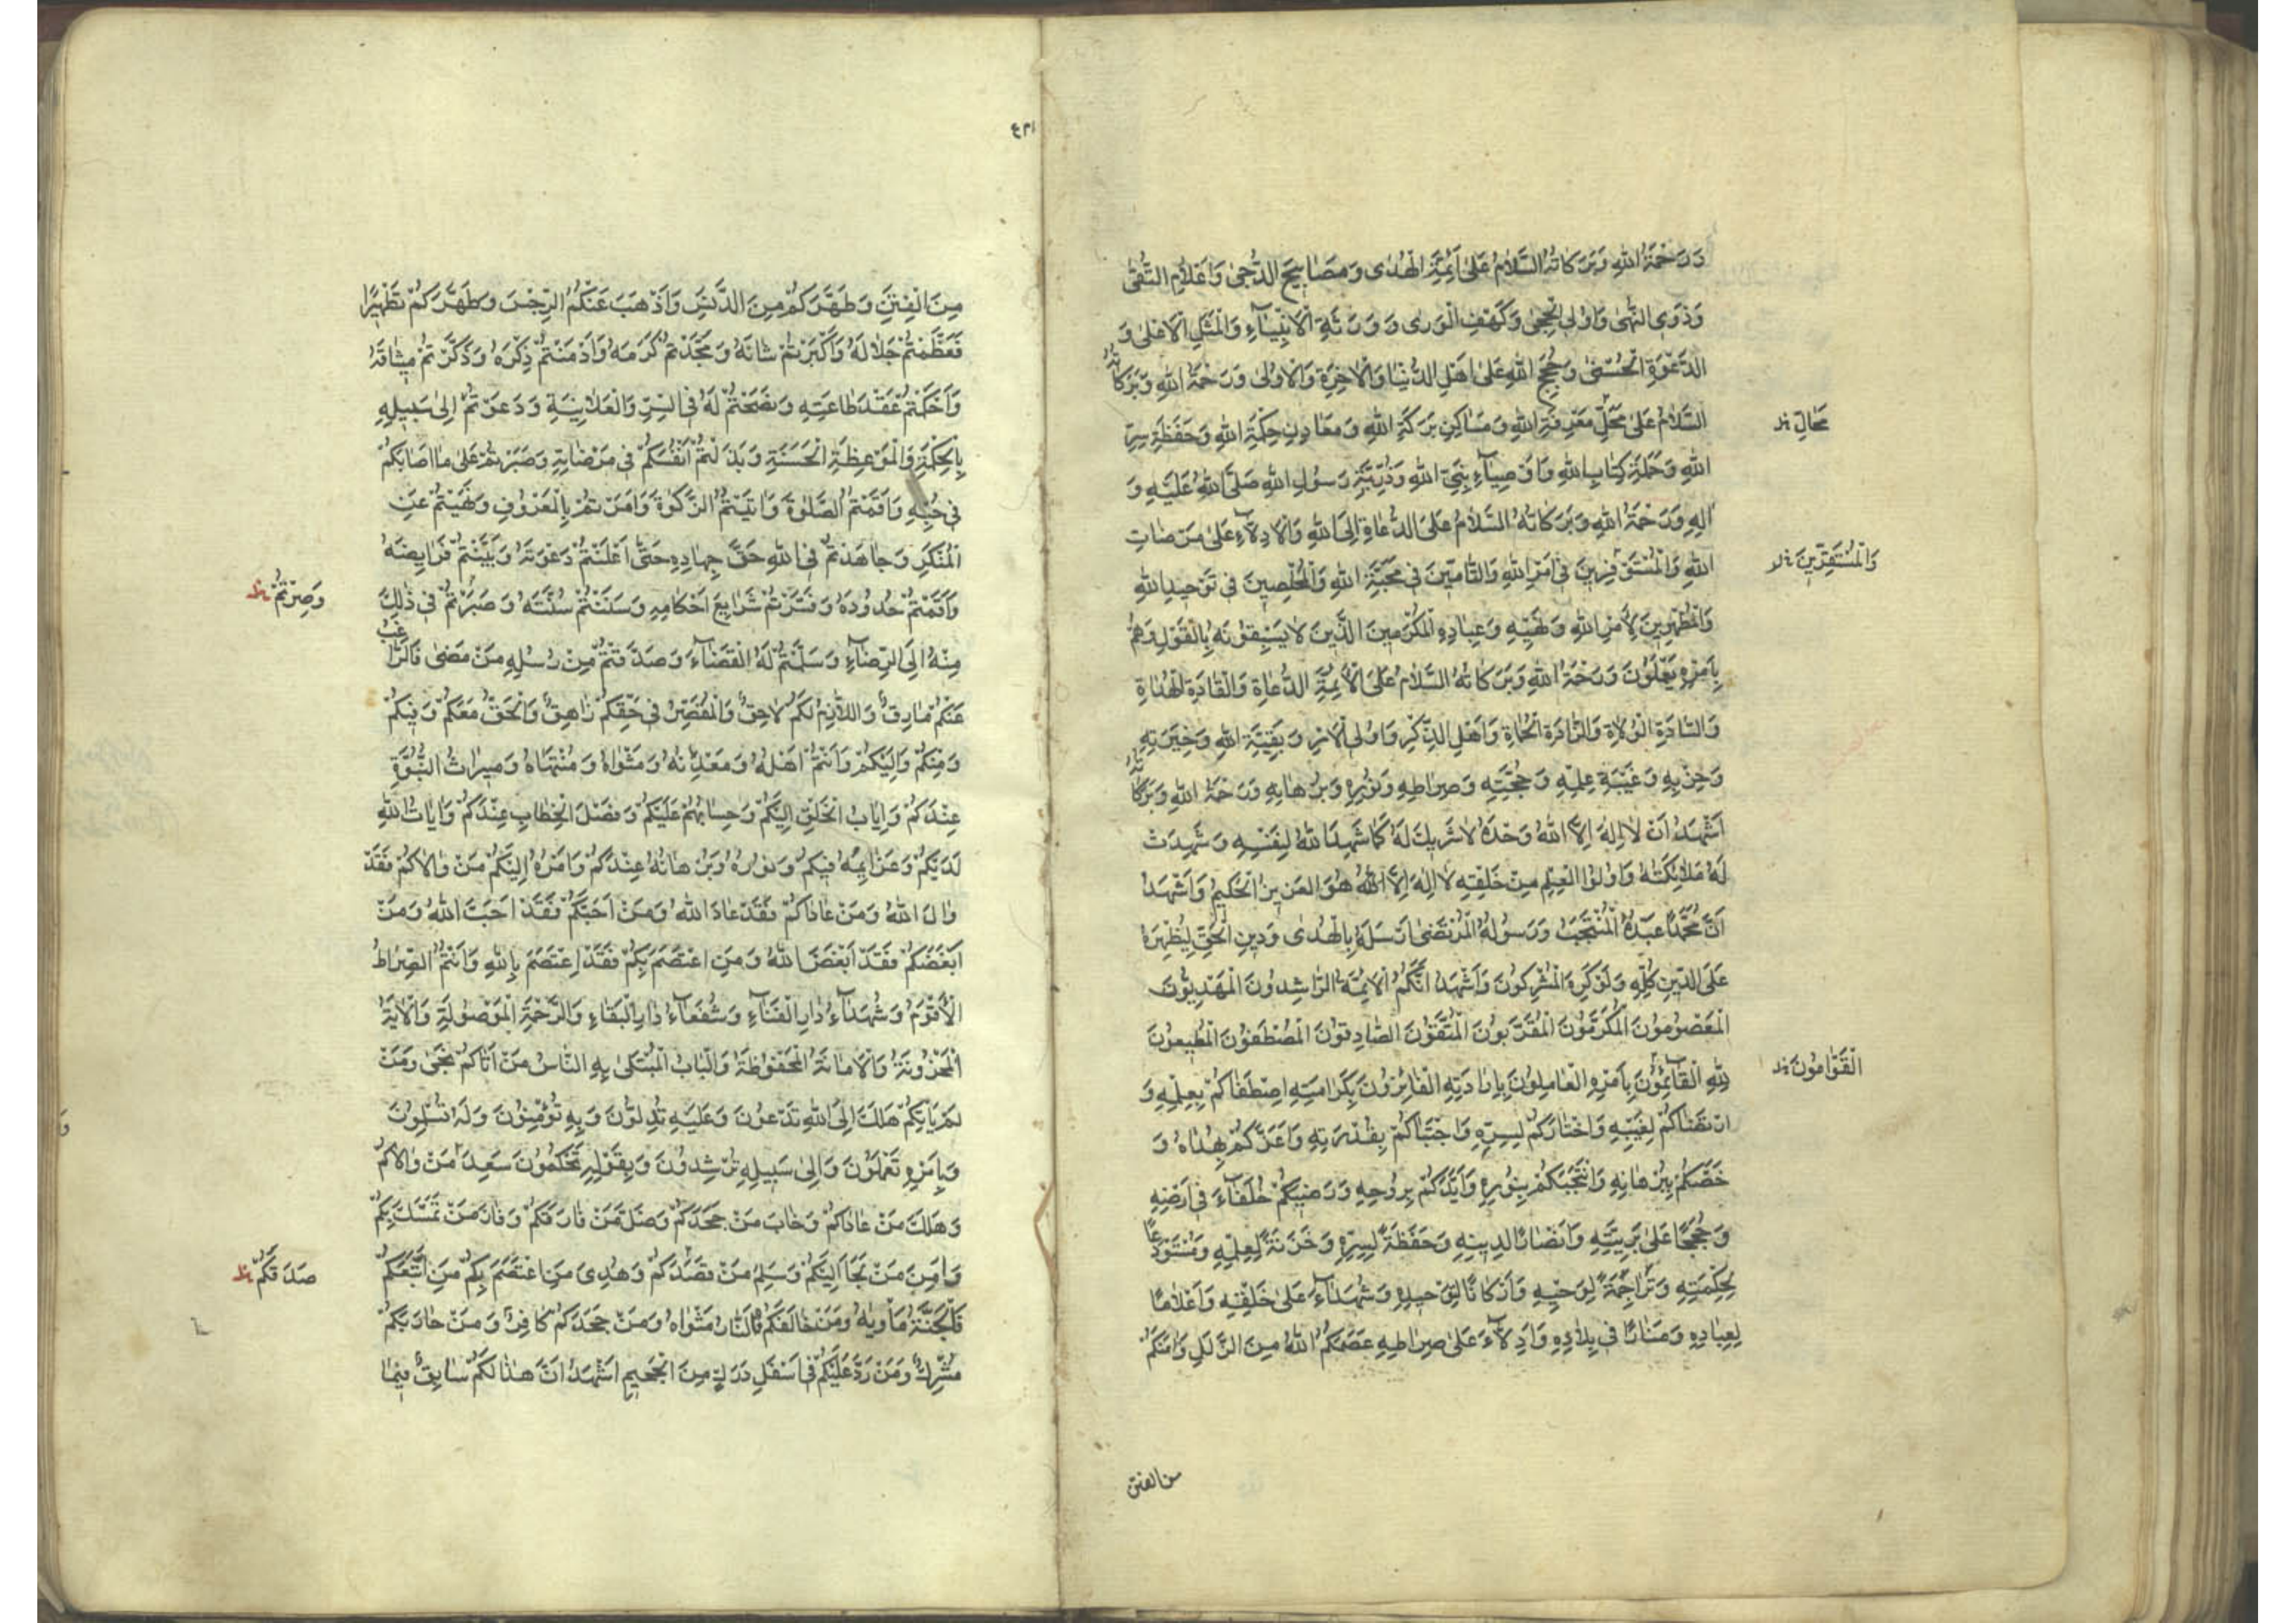 وَرَحْمَةُ اللهِ وَبَرَكَاتُهُ السَّلَامُ عَلَى اَئِمَّةِ الْهُدَى وَمَصَابِيحِ الدُّجَى وَاَعْلَامِ التُّقَى
وَذَوِي النُّهَى وَاُولِي الْحِجَى وَكَهْفِ الْوَرَى وَوَرَثَةِ الْاَنْبِيَاءِ وَالْمَثَلِ الْاَعْلَى وَ
الدَّعْوَةِ الْحُسْنَى وَحُجَجِ اللهِ عَلَى اَهْلِ الدُّنْيَا وَالْاٰخِرَةِ وَالْاُولَى وَرَحْمَةُ اللهِ وَبَرَكَاتُهُ
السَّلَامُ عَلَى مَحَلِّ مَعْرِفَةِ اللهِ وَمَسَاكِنِ بَرَكَةِ اللهِ وَمَعَادِنِ حِكْمَةِ اللهِ وَحَفَظَةِ سِرِّ
مَحَالِّ خ
اللهِ وَحَمَلَةِ كِتَابِ اللهِ وَاَوْصِيَاءِ نَبِيِّ اللهِ وَذُرِّيَّةِ رَسُولِ اللهِ صَلَّى اللهُ عَلَيْهِ وَ
اٰلِهِ وَرَحْمَةُ اللهِ وَبَرَكَاتُهُ السَّلَامُ عَلَى الدُّعَاةِ اِلَى اللهِ وَالْاَدِلَّاءِ عَلَى مَرْضَاتِ
اللهِ وَالْمُسْتَوْفِرِينَ فِي اَمْرِ اللهِ وَالتَّامِّينَ فِي مَحَبَّةِ اللهِ وَالْمُخْلِصِينَ فِي تَوْحِيدِ اللهِ
وَالْمُسْتَقِرِّينَ خ
وَالْمُظْهِرِينَ لِاَمْرِ اللهِ وَنَهْيِهِ وَعِبَادِهِ الْمُكْرَمِينَ الَّذِينَ لَا يَسْبِقُونَهُ بِالْقَوْلِ وَهُمْ
بِاَمْرِهِ يَعْمَلُونَ وَرَحْمَةُ اللهِ وَبَرَكَاتُهُ السَّلَامُ عَلَى الْاَئِمَّةِ الدُّعَاةِ وَالْقَادَةِ الْهُدَاةِ
وَالسَّادَةِ الْوُلَاةِ وَالذَّادَةِ الْحُمَاةِ وَاَهْلِ الذِّكْرِ وَاُولِي الْاَمْرِ وَبَقِيَّةِ اللهِ وَخِيَرَتِهِ
وَحِزْبِهِ وَعَيْبَةِ عِلْمِهِ وَحُجَّتِهِ وَصِرَاطِهِ وَنُورِهِ وَبُرْهَانِهِ وَرَحْمَةُ اللهِ وَبَرَكَاتُهُ
اَشْهَدُ اَنْ لَا اِلٰهَ اِلَّا اللهُ وَحْدَهُ لَا شَرِيكَ لَهُ كَمَا شَهِدَ اللهُ لِنَفْسِهِ وَشَهِدَتْ
لَهُ مَلَائِكَتُهُ وَاُولُوا الْعِلْمِ مِنْ خَلْقِهِ لَا اِلٰهَ اِلَّا اللهُ هُوَ الْعَزِيزُ الْحَكِيمُ وَاَشْهَدُ
اَنَّ مُحَمَّدًا عَبْدُهُ الْمُنْتَجَبُ وَرَسُولُهُ الْمُرْتَضَى اَرْسَلَهُ بِالْهُدَى وَدِينِ الْحَقِّ لِيُظْهِرَهُ
عَلَى الدِّينِ كُلِّهِ وَلَوْ كَرِهَ الْمُشْرِكُونَ وَاَشْهَدُ اَنَّكُمُ الْاَئِمَّةُ الرَّاشِدُونَ الْمَهْدِيُّونَ
الْمَعْصُومُونَ الْمُكَرَّمُونَ الْمُقَرَّبُونَ الْمُتَّقُونَ الصَّادِقُونَ الْمُصْطَفَوْنَ الْمُطِيعُونَ
لِلّٰهِ الْقَائِمُونَ بِاَمْرِهِ الْعَامِلُونَ بِاِرَادَتِهِ الْفَائِزُونَ بِكَرَامَتِهِ اصْطَفَاكُمْ بِعِلْمِهِ وَ
الْقَوَّامُونَ خ
ارْتَضَاكُمْ لِغَيْبِهِ وَاخْتَارَكُمْ لِسِرِّهِ وَاجْتَبَاكُمْ بِقُدْرَتِهِ وَاَعَزَّكُمْ بِهُدَاهُ وَ
خَصَّكُمْ بِبُرْهَانِهِ وَانْتَجَبَكُمْ بِنُورِهِ وَاَيَّدَكُمْ بِرُوحِهِ وَرَضِيَكُمْ خُلَفَاءَ فِي اَرْضِهِ
وَحُجَجًا عَلَى بَرِيَّتِهِ وَاَنْصَارًا لِدِينِهِ وَحَفَظَةً لِسِرِّهِ وَخَزَنَةً لِعِلْمِهِ وَمُسْتَوْدَعًا
لِحِكْمَتِهِ وَتَرَاجِمَةً لِوَحْيِهِ وَاَرْكَانًا لِتَوْحِيدِهِ وَشُهَدَاءَ عَلَى خَلْقِهِ وَاَعْلَامًا
لِعِبَادِهِ وَمَنَارًا فِي بِلَادِهِ وَاَدِلَّاءَ عَلَى صِرَاطِهِ عَصَمَكُمُ اللهُ مِنَ الزَّلَلِ وَاٰمَنَكُمْ
من الفتن
مِنَ الْفِتَنِ وَطَهَّرَكُمْ مِنَ الدَّنَسِ وَاَذْهَبَ عَنْكُمُ الرِّجْسَ وَطَهَّرَكُمْ تَطْهِيرًا
فَعَظَّمْتُمْ جَلَالَهُ وَاَكْبَرْتُمْ شَانَهُ وَمَجَّدْتُمْ كَرَمَهُ وَاَدْمَنْتُمْ ذِكْرَهُ وَذَكَّرْتُمْ مِيثَاقَهُ
وَاَحْكَمْتُمْ عَقْدَ طَاعَتِهِ وَنَصَحْتُمْ لَهُ فِي السِّرِّ وَالْعَلَانِيَةِ وَدَعَوْتُمْ اِلَى سَبِيلِهِ
بِالْحِكْمَةِ وَالْمَوْعِظَةِ الْحَسَنَةِ وَبَذَلْتُمْ اَنْفُسَكُمْ فِي مَرْضَاتِهِ وَصَبَرْتُمْ عَلَى مَا اَصَابَكُمْ
فِي حُبِّهِ وَاَقَمْتُمُ الصَّلٰوةَ وَاٰتَيْتُمُ الزَّكٰوةَ وَاَمَرْتُمْ بِالْمَعْرُوفِ وَنَهَيْتُمْ عَنِ
الْمُنْكَرِ وَجَاهَدْتُمْ فِي اللهِ حَقَّ جِهَادِهِ حَتَّى اَعْلَنْتُمْ دَعْوَتَهُ وَبَيَّنْتُمْ فَرَايِضَهُ
وَاَقَمْتُمْ حُدُودَهُ وَنَشَرْتُمْ شَرَايِعَ اَحْكَامِهِ وَسَنَنْتُمْ سُنَّتَهُ وَصَبَرْتُمْ فِي ذٰلِكَ
وَصِرْتُمْ خ
مِنْهُ اِلَى الرِّضَاءِ وَسَلَّمْتُمْ لَهُ الْقَضَاءَ وَصَدَّقْتُمْ مِنْ رُسُلِهِ مَنْ مَضَى فَالرَّاغِبُ
عَنْكُمْ مَارِقٌ وَاللَّازِمُ لَكُمْ لَاحِقٌ وَالْمُقَصِّرُ فِي حَقِّكُمْ زَاهِقٌ وَالْحَقُّ مَعَكُمْ وَفِيكُمْ
وَمِنْكُمْ وَاِلَيْكُمْ وَاَنْتُمْ اَهْلُهُ وَمَعْدِنُهُ وَمَثْوَاهُ وَمُنْتَهَاهُ وَمِيرَاثُ النُّبُوَّةِ
عِنْدَكُمْ وَاِيَابُ الْخَلْقِ اِلَيْكُمْ وَحِسَابُهُمْ عَلَيْكُمْ وَفَصْلُ الْخِطَابِ عِنْدَكُمْ وَاٰيَاتُ اللهِ
لَدَيْكُمْ وَعَزَايِمُهُ فِيكُمْ وَنُورُهُ وَبُرْهَانُهُ عِنْدَكُمْ وَاَمْرُهُ اِلَيْكُمْ مَنْ وَالَاكُمْ فَقَدْ
وَالَى اللهَ وَمَنْ عَادَاكُمْ فَقَدْ عَادَ اللهَ وَمَنْ اَحَبَّكُمْ فَقَدْ اَحَبَّ اللهَ وَمَنْ
اَبْغَضَكُمْ فَقَدْ اَبْغَضَ اللهَ وَمَنِ اعْتَصَمَ بِكُمْ فَقَدْ اِعْتَصَمَ بِاللهِ وَاَنْتُمُ الصِّرَاطُ
الْاَقْوَمُ وَشُهَدَاءُ دَارِ الْفَنَاءِ وَشُفَعَاءُ دَارِ الْبَقَاءِ وَالرَّحْمَةُ الْمَوْصُولَةُ وَالْاٰيَةُ
الْمَخْزُونَةُ وَالْاَمَانَةُ الْمَحْفُوظَةُ وَالْبَابُ الْمُبْتَلَى بِهِ النَّاسُ مَنْ اَتَاكُمْ نَجَى وَمَنْ
لَمْ يَاْتِكُمْ هَلَكَ اِلَى اللهِ تَدْعُونَ وَعَلَيْهِ تَدُلُّونَ وَبِهِ تُؤْمِنُونَ وَلَهُ تُسَلِّمُونَ
وَبِاَمْرِهِ تَعْمَلُونَ وَاِلَى سَبِيلِهِ تُرْشِدُونَ وَبِقَوْلِهِ تَحْكُمُونَ سَعِدَ مَنْ وَالَاكُمْ
وَهَلَكَ مَنْ عَادَاكُمْ وَخَابَ مَنْ جَحَدَكُمْ وَضَلَّ مَنْ فَارَقَكُمْ وَفَازَ مَنْ تَمَسَّكَ بِكُمْ
وَاَمِنَ مَنْ لَجَاَ اِلَيْكُمْ وَسَلِمَ مَنْ صَدَّقَكُمْ وَهُدِيَ مَنِ اعْتَصَمَ بِكُمْ مَنِ اتَّبَعَكُمْ
صَدَقَكُمْ خ
فَالْجَنَّةُ مَاْوٰيهُ وَمَنْ خَالَفَكُمْ فَالنَّارُ مَثْوَاهُ وَمَنْ جَحَدَكُمْ كَافِرٌ وَمَنْ حَارَبَكُمْ
مُشْرِكٌ وَمَنْ رَدَّ عَلَيْكُمْ فِي اَسْفَلِ دَرَكٍ مِنَ الْجَحِيمِ اَشْهَدُ اَنَّ هٰذَا لَكُمْ سَابِقٌ فِيمَا